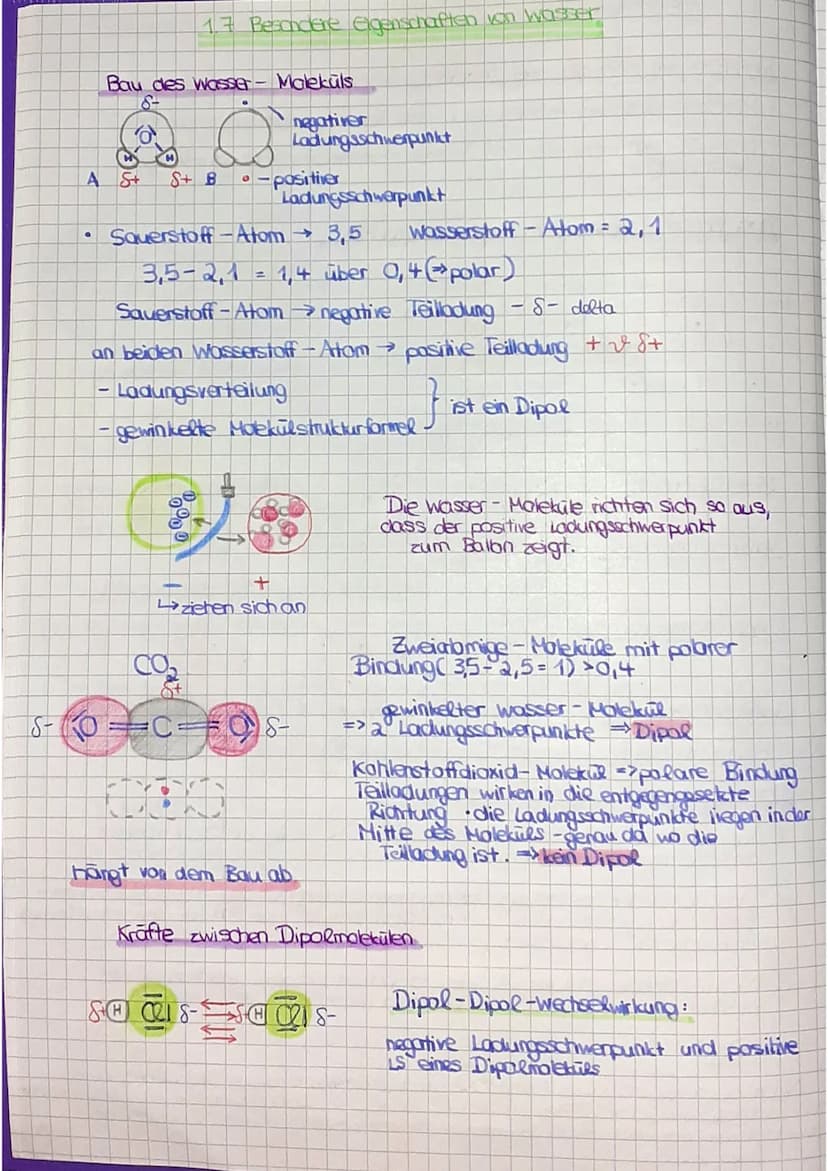 1.7 Besondere Eigenschaften von Wasser
Bau des Wasser - Moleküls
δ-
O
H H
A δ+ δ+ B
negativer
Ladungsschwerpunkt
- positiver
Ladungsschwerpunkt
• Sauerstoff - Atom → 3,5 Wasserstoff - Atom = 2,1
3,5 - 2,1 = 1,4 über 0,4 (⇒ polar)
Sauerstoff - Atom → negative Teilladung - δ- delta
an beiden Wasserstoff - Atom → positive Teilladung + δ+
- Ladungsverteilung
- gewinkelte Molekülstrukturformel
} ist ein Dipol
Die Wasser - Moleküle richten sich so aus,
dass der positive Ladungsschwerpunkt
zum Ballon zeigt.
- +
↳ ziehen sich an
CO₂
δ+
δ- O = C = O δ-
Zweiatomige - Moleküle mit polarer
Bindung ( 3,5 - 2,5 = 1) > 0,4
gewinkelter Wasser - Molekül
=> 2 Ladungsschwerpunkte ⇒ Dipol
Kohlenstoffdioxid - Molekül => polare Bindung
Teilladungen wirken in die entgegengesetzte
Richtung • die Ladungsschwerpunkte liegen in der
Mitte des Moleküls - genau da wo die
Teilladung ist. ⇒ kein Dipol
Hängt von dem Bau ab
Kräfte zwischen Dipolmolekülen
δ+ H Cl δ- δ+ H Cl δ-
Dipol - Dipol - Wechselwirkung:
negative Ladungsschwerpunkt und positive
LS eines Dipolmoleküls